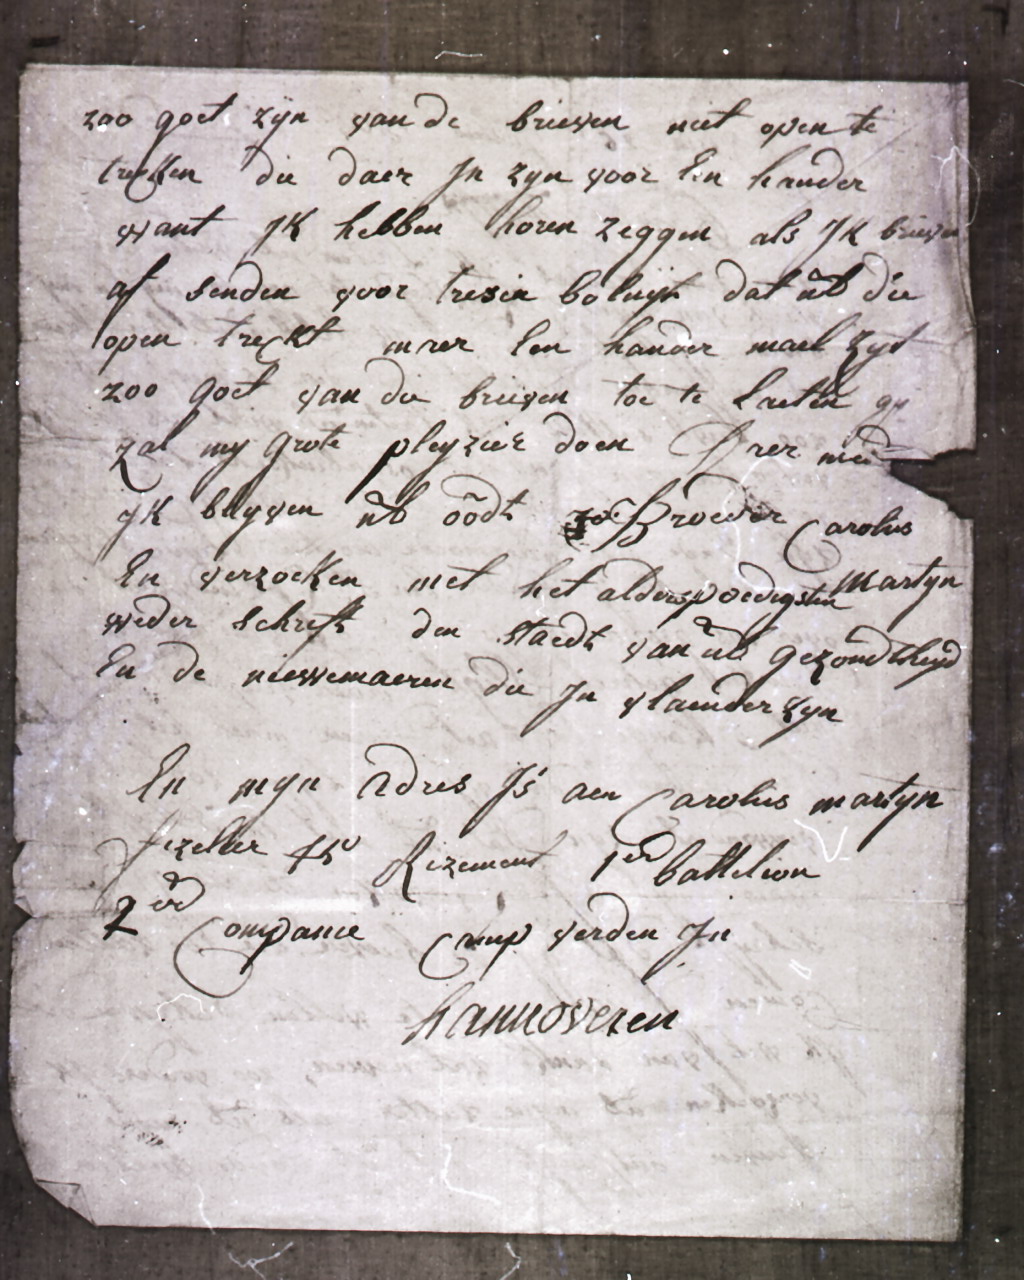 zoo goet zyn van de brieven niet open te
trecken die daer Jn zyn voor Een hander
want JK hebben horen zeggen als JK brieven
af senden voor tresia dat ub die
open treckt maer Een hander mael zyt
zoo goet van die brieven toe te Laeten gy
zal my grote pleyzier doen
JK blyven ub Broeder Carolus
En verzoeken met het alderspoedigsten Martyn
weder schrift den staedt van ub gezondtheyd
En de niewemaeren die Jn vlaender zyn
En myn adres Js aen Carolus martyn
fezelier Rezement 1er battelion
2er Companie Camp verden Jn
hannoveren